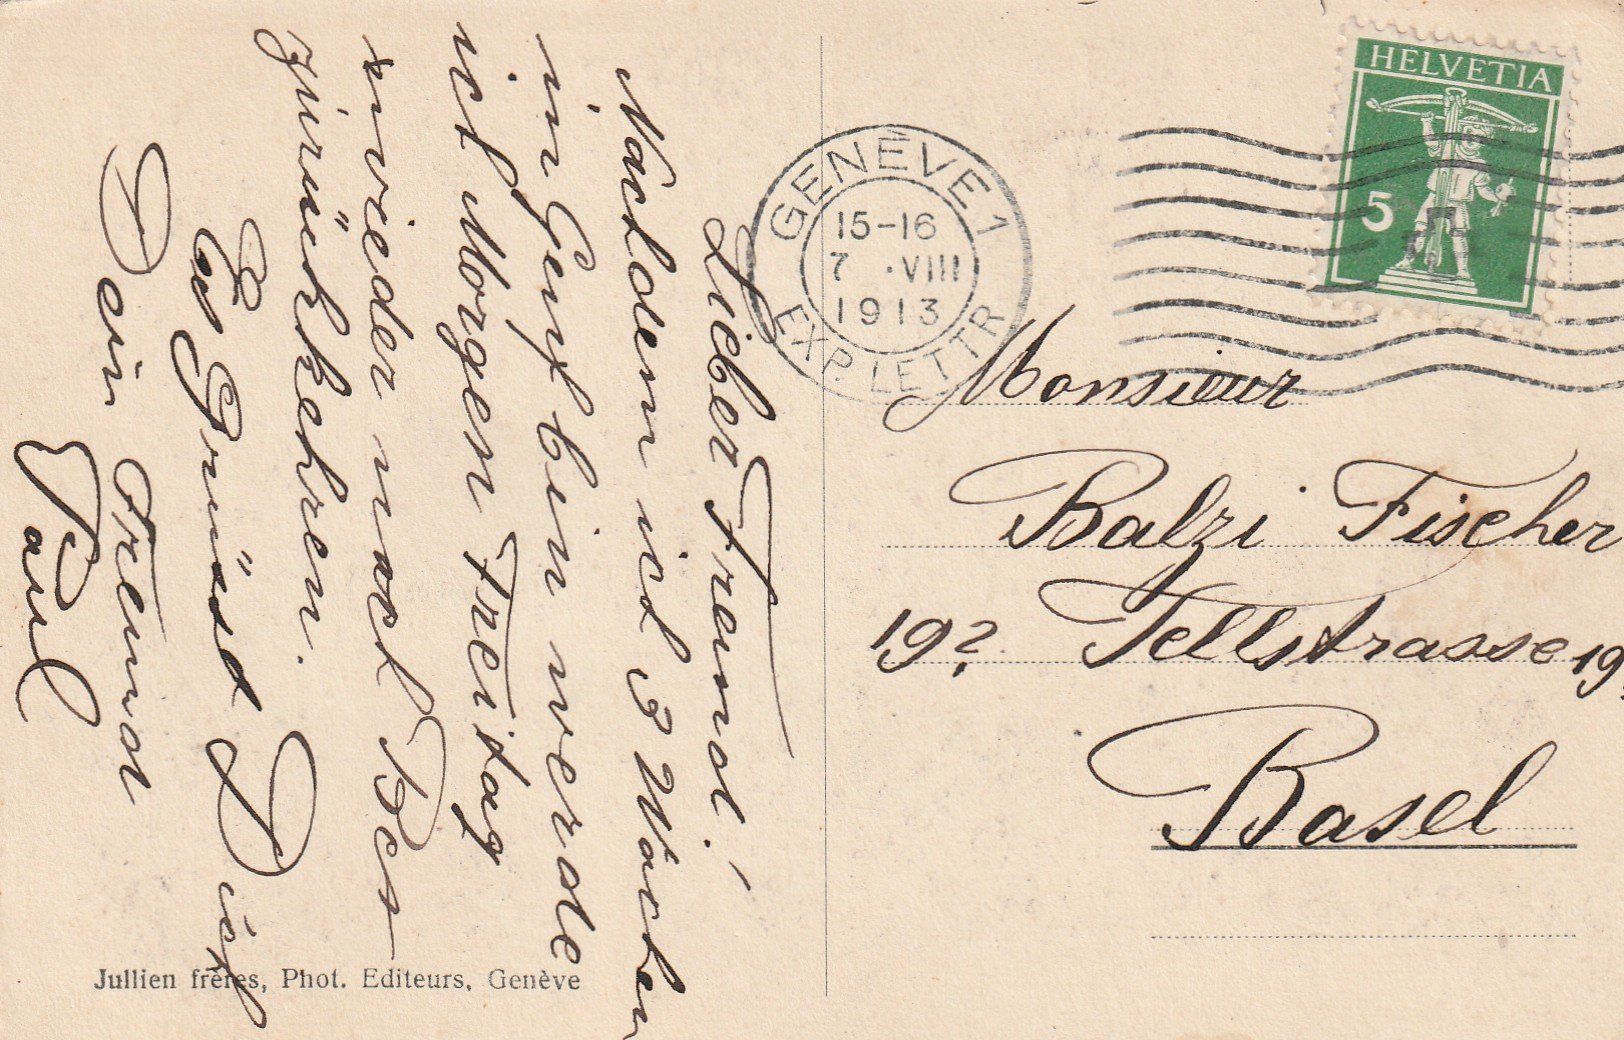 Lieber Freund!
Nachdem ich 3 Wochen
in Genf bin werde
ich Morgen Freitag
wieder nach Ber
zürückkehren.
Es Grüsst Dich
Dein Freund
Paul
Jullien frères, Phot. Editeurs, Genève
GENÈVE 1
15-16
7 · VIII
1913
EXP. LETTR
HELVETIA
5
Monsieur
Balzi Fischer
19? Tellstrasse 19?
Basel